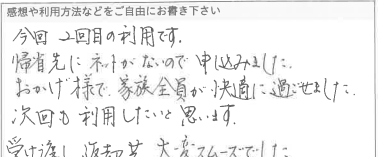 感想や利用方法などをご自由にお書き下さい
今回 2回目の利用です.
帰省先にネットがないので申込みました.
おかげ様で、家族全員が快適に過ごせました.
次回も利用したいと思います.
受け渡し、返却共、大変スムーズでした